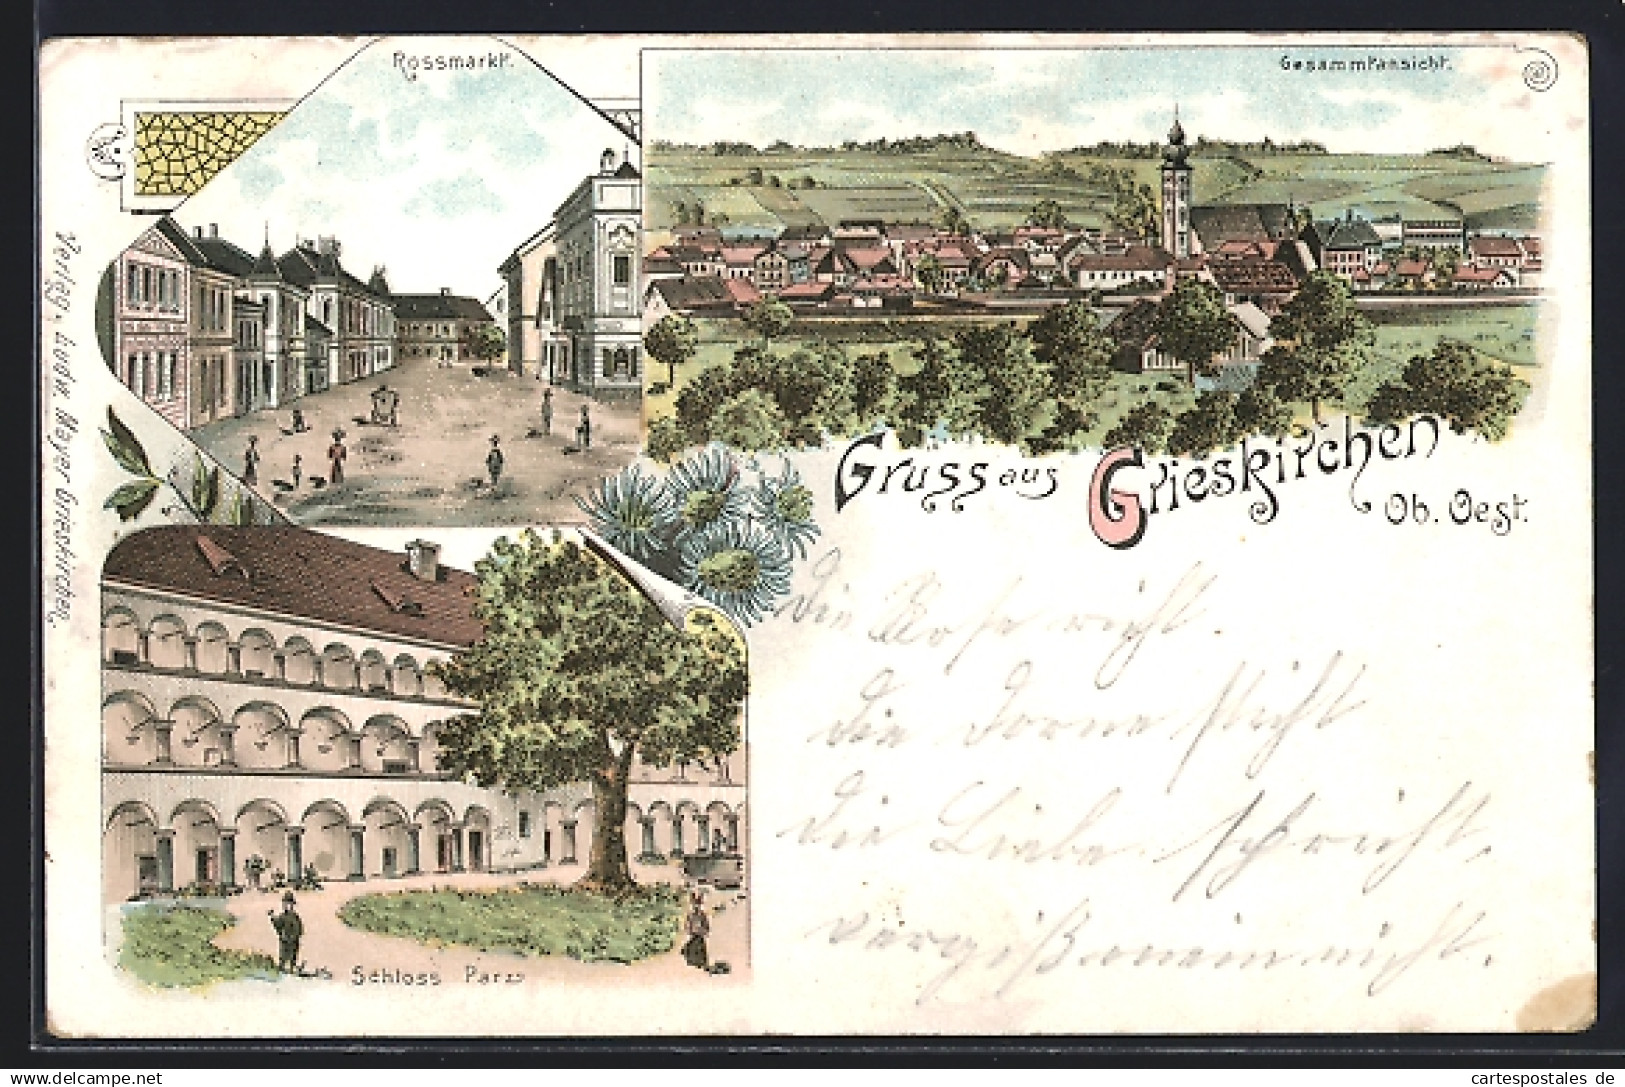 Rossmarkt.
Gesammtansicht.
Verlag v. Ludw. Mayer Grieskirchen.
Gruss aus Grieskirchen
Ob. Oest.
Die Rose riecht.
die Dorne sticht
die Liebe spricht,
vergißmeinnicht.
Schloss Parz
cartespostales de